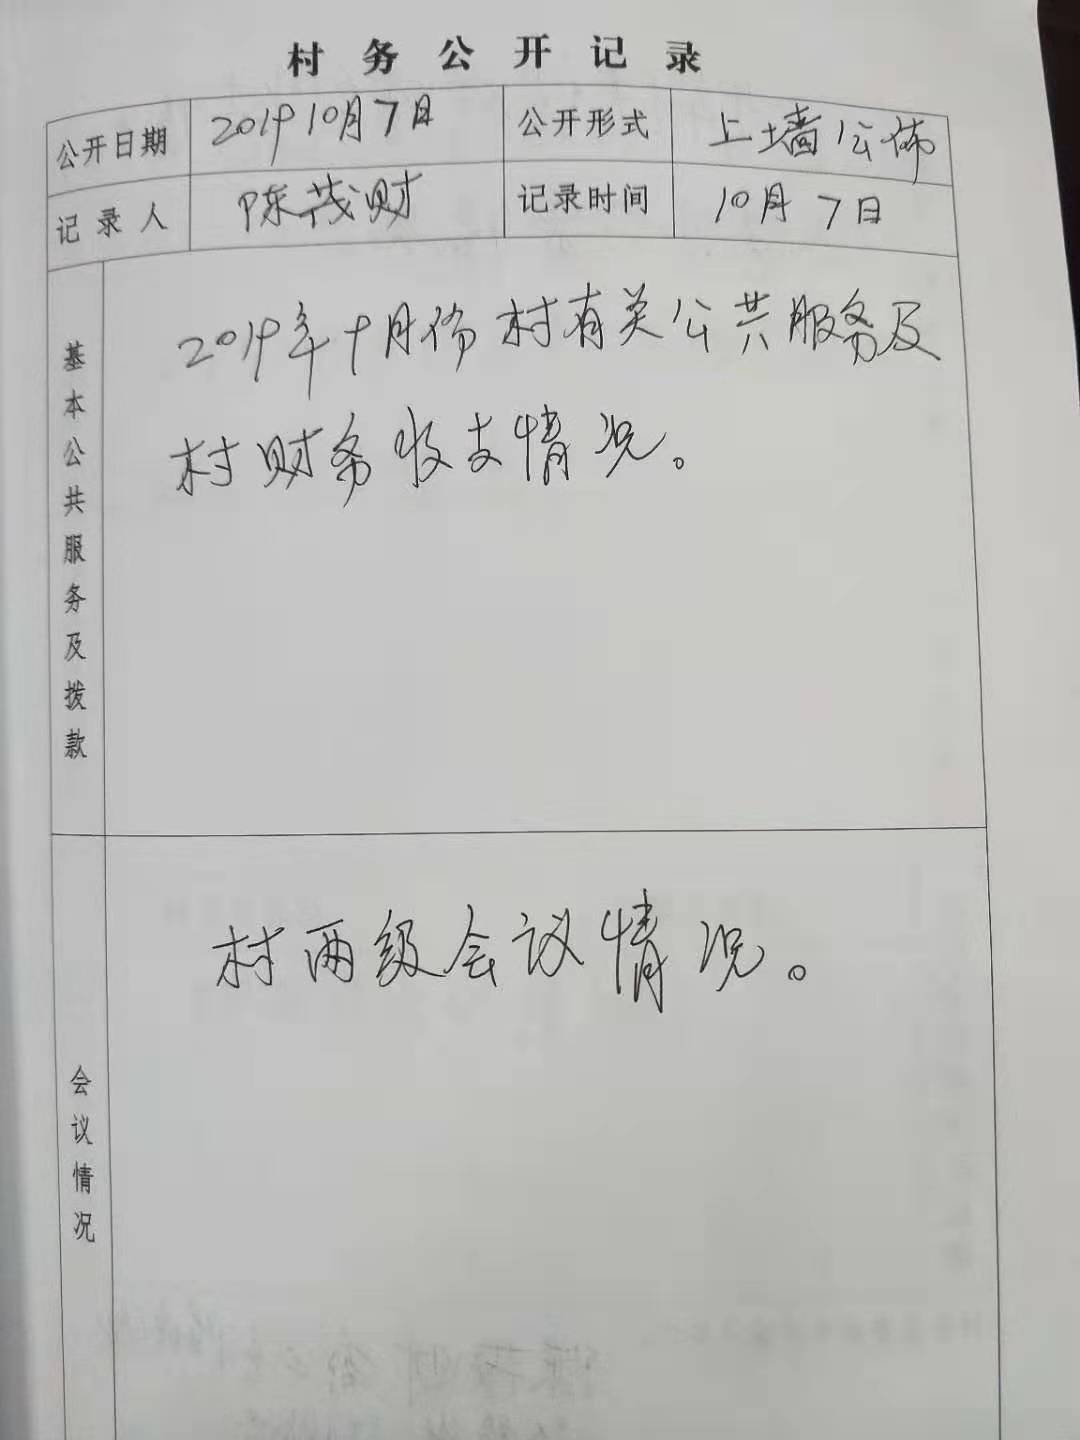 村务公开记录
公开日期 2019 10月7日 公开形式 上墙公佈
记录人 陈茂财 记录时间 10月7日
基本公共服务及拨款
2019年十月份村有关公共服务及
村财务收支情况。
会议情况
村两级会议情况。